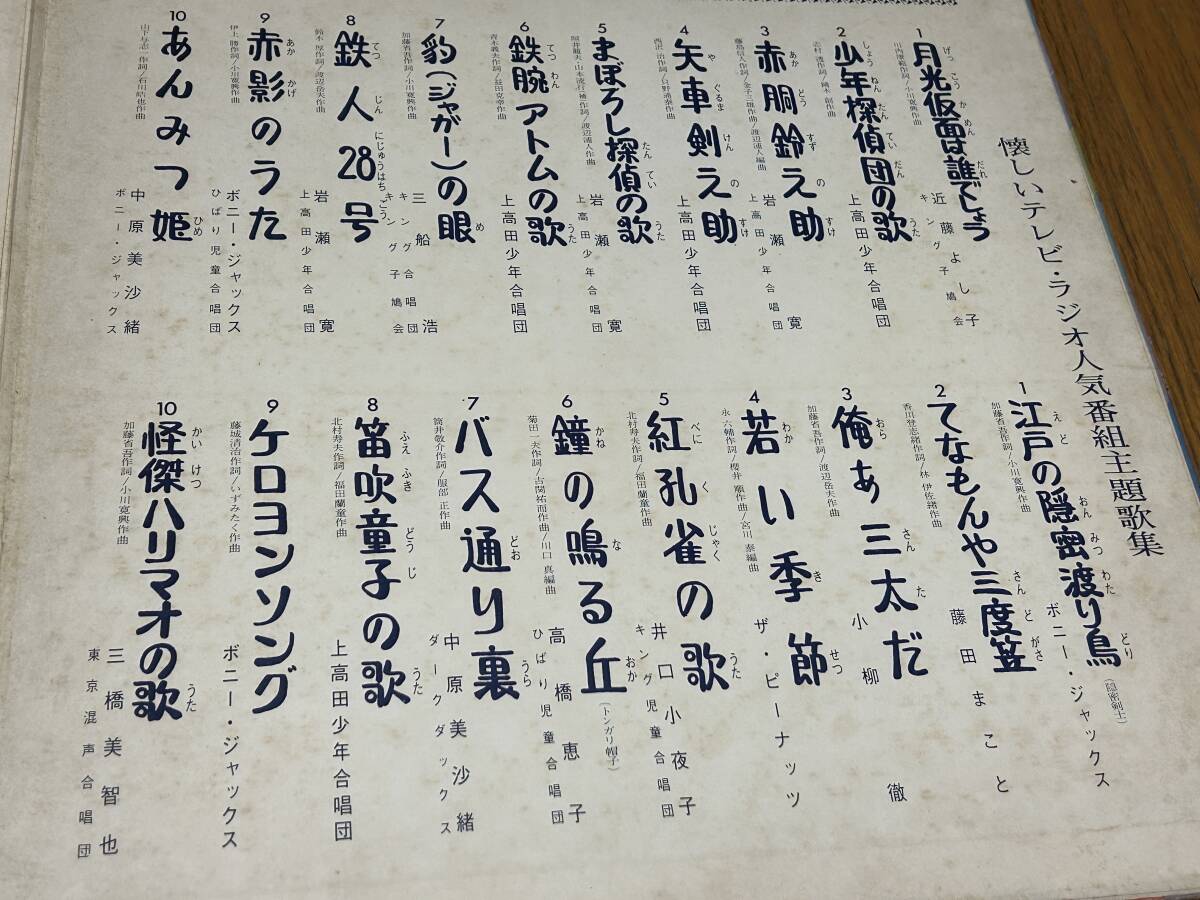 懐しいテレビ・ラジオ人気番組主題歌集
1 月光仮面は誰でしょう
川内康範作詞/小川寛興作曲
近藤よし子
キング子鳩会
2 少年探偵団の歌
上高田少年合唱団
3 赤胴鈴之助
藤島信人作詞/金子三雄作曲/渡辺浦人編曲
岩瀬寛
上高田少年合唱団
4 矢車剣之助
上高田少年合唱団
5 まぼろし探偵の歌
岩瀬寛
上高田少年合唱団
6 鉄腕アトムの歌
上高田少年合唱団
7 豹(ジャガー)の眼
加藤省吾作詞/小川寛興作曲
三船浩
キング合唱団
キング子鳩会
8 鉄人28号
鈴木厚作詞/渡辺岳夫作曲
岩瀬寛
上高田少年合唱団
9 赤影のうた
伊上勝作詞/小川寛興作曲
ボニー・ジャックス
ひばり児童合唱団
10 あんみつ姫
中原美沙緒
ボニー・ジャックス
1 江戸の隠密渡り鳥
(隠密剣士)
加藤省吾作詞/小川寛興作曲
ボニー・ジャックス
2 てなもんや三度笠
香川登志緒作詞/林伊佐緒作曲
藤田まこと
3 俺ぁ三太だ
加藤省吾作詞/渡辺岳夫作曲
小柳徹
4 若い季節
永六輔作詞/櫻井順作曲/宮川泰編曲
ザ・ピーナッツ
5 紅孔雀の歌
北村寿夫作詞/福田蘭童作曲
井口小夜子
キング児童合唱団
6 鐘の鳴る丘
(トンガリ帽子)
菊田一夫作詞/古関裕而作曲/川口真編曲
高橋恵子
ひばり児童合唱団
7 バス通り裏
筒井敬介作詞/服部正作曲
中原美沙緒
ダークダックス
8 笛吹童子の歌
北村寿夫作詞/福田蘭童作曲
上高田少年合唱団
9 ケロヨンソング
藤城清治作詞/いずみたく作曲
ボニー・ジャックス
10 怪傑ハリマオの歌
加藤省吾作詞/小川寛興作曲
三橋美智也
東京混声合唱団